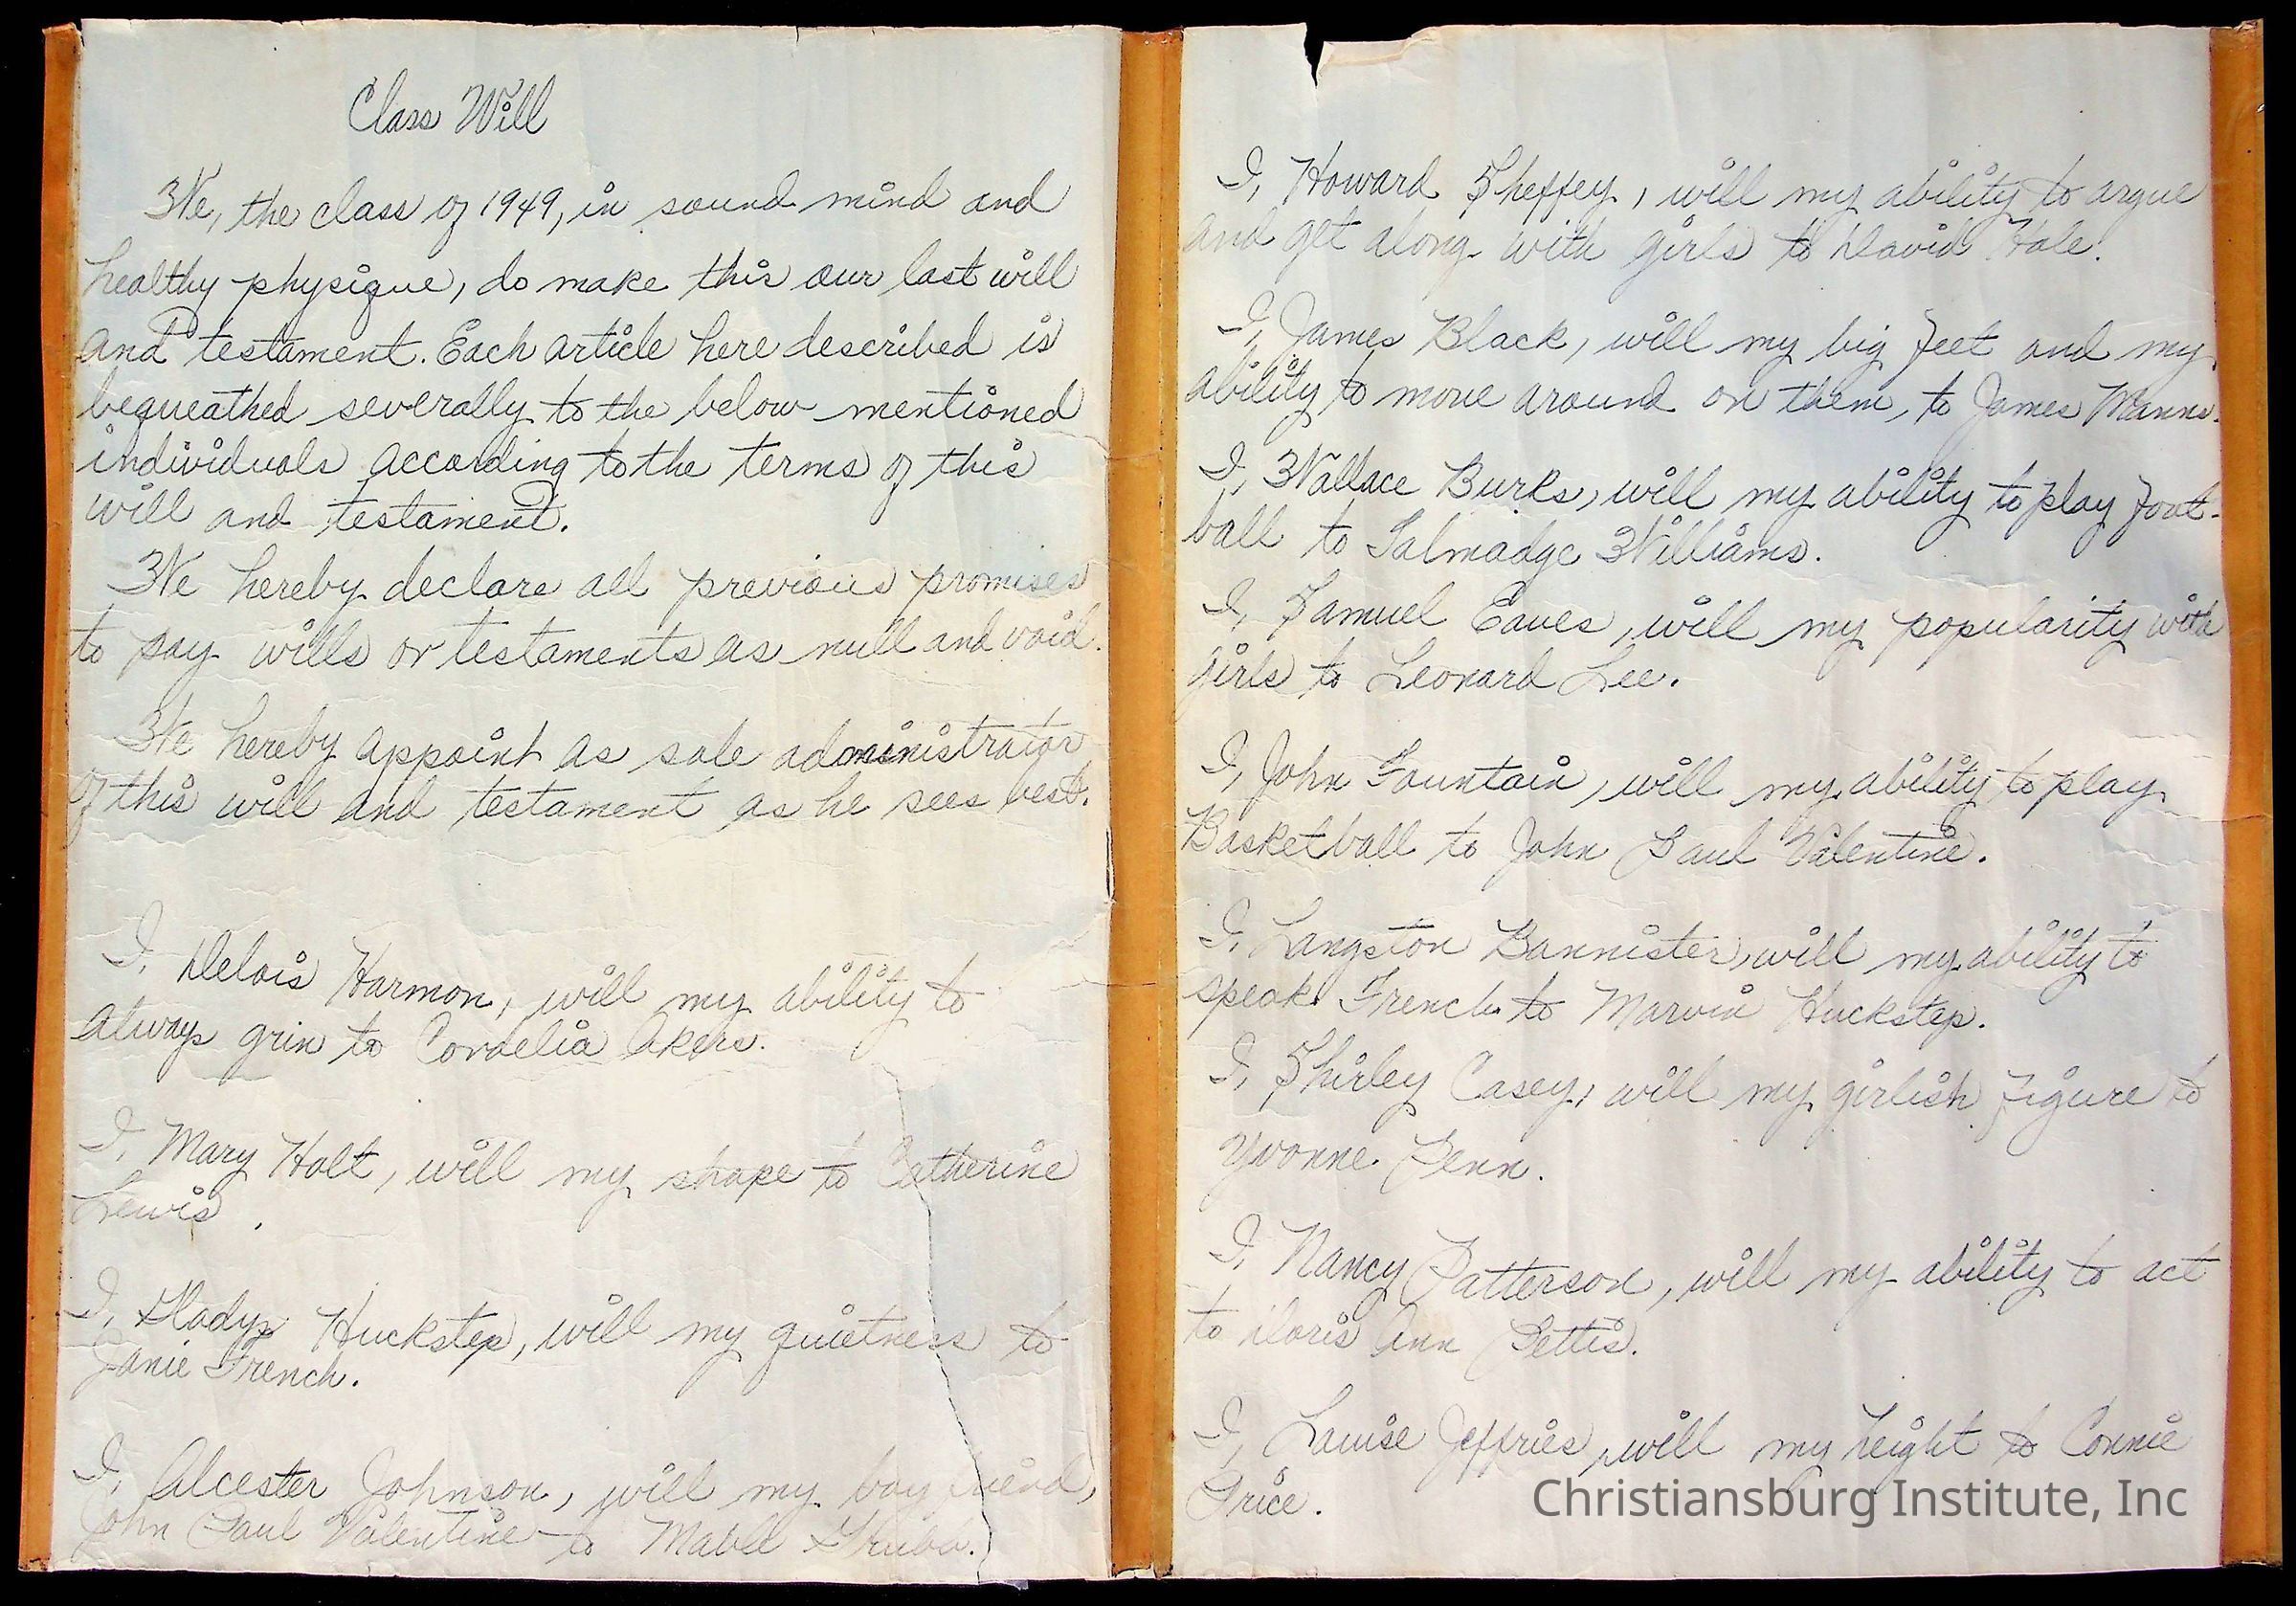 Class Will
We, the class of 1949, in sound mind and
healthy physique, do make this our last will
and testament. Each article here described is
bequeathed severally to the below mentioned
individuals according to the terms of this
will and testament.
We hereby declare all previous promises
to say wills or testaments as null and void.
We hereby appoint as sole administrator
of this will and testament as he sees best.
I, Delois Harmon, will my ability to
always grin to Cornelia Akers.
I, Mary Holt, will my shape to Catherine
Lewis.
I, Gladys Huckstep, will my quietness to
Janie French.
I, Alcester Johnson, will my boy friend,
John Paul Valentine to Mable
I, Howard Sheffey, will my ability to argue
and get along with girls to David Hale.
I, James Black, will my big feet and my
ability to move around on them, to James Manns.
I, Wallace Burks, will my ability to play foot-
ball to Talmadge Williams.
I, Samuel Eaves, will my popularity with
girls to Leonard Lee.
I, John Fountain, will my ability to play
Basketball to John Paul Valentine.
I, Langston Bannister, will my ability to
speak French to Marvin Huckstep.
I, Shirley Casey, will my girlish figure to
Yvonne Penn.
I, Nancy Patterson, will my ability to act
to Doris Ann Pettis.
I, Louise Jeffries, will my height to Connie
Price.
Christiansburg Institute, Inc